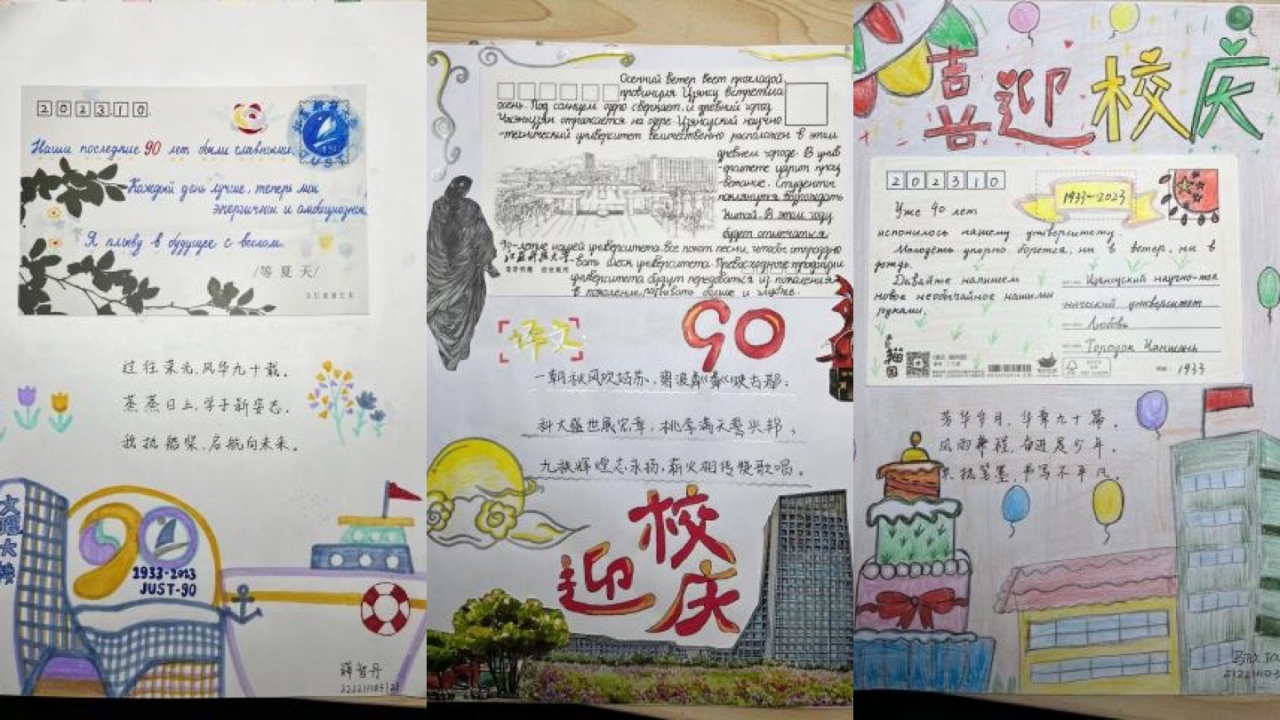 202310
Наши последние 90 лет были славными,
JUST
Каждый день лучше, теперь мы
энергичны и амбициозны,
Я плыву в будущее с веслом.
/等夏天/
SUMMER
过往荣光,风华九十载。
蒸蒸日上,学子新姿态。
我执船桨,启航向未来。
90
1933-2023
JUST-90
Осенний ветер веет прохладой,
провинция Цзянсу встретила
осень. Под солнцем озро сверкает, и древний город
Чжэньцзян отражается на озере. Цзянсуский научно
-технический университет величественно расположен в этом
древнем городе. В унив
Студенты
Китай. В этом году
будет отмечаться
90-летие нашего университета. Все поют песни, чтобы
江苏科技大学
университета будут передаваться из поколения
в поколение,
译文
90
一朝秋风吹姑苏,碧波粼粼映古都;
科大盛世展宏章,桃李满天誓兴邦,
九秩辉煌志永扬,薪火相传慢歌唱。
迎校庆
喜迎校庆
202310
1933-2023
Уже 90 лет
исполнилось нашему университету.
Молодёжь упорно борется, ни в ветер, ни в
дождь.
Давайте напишем
новое необычайное нашими
руками,
Цзянсуский научно-тех
нический университет
Любовь
Городок Чаншань
1933
猫
芳华岁月,华章九十篇,
风雨兼程,奋进是少年。
执笔墨,书写不平凡。